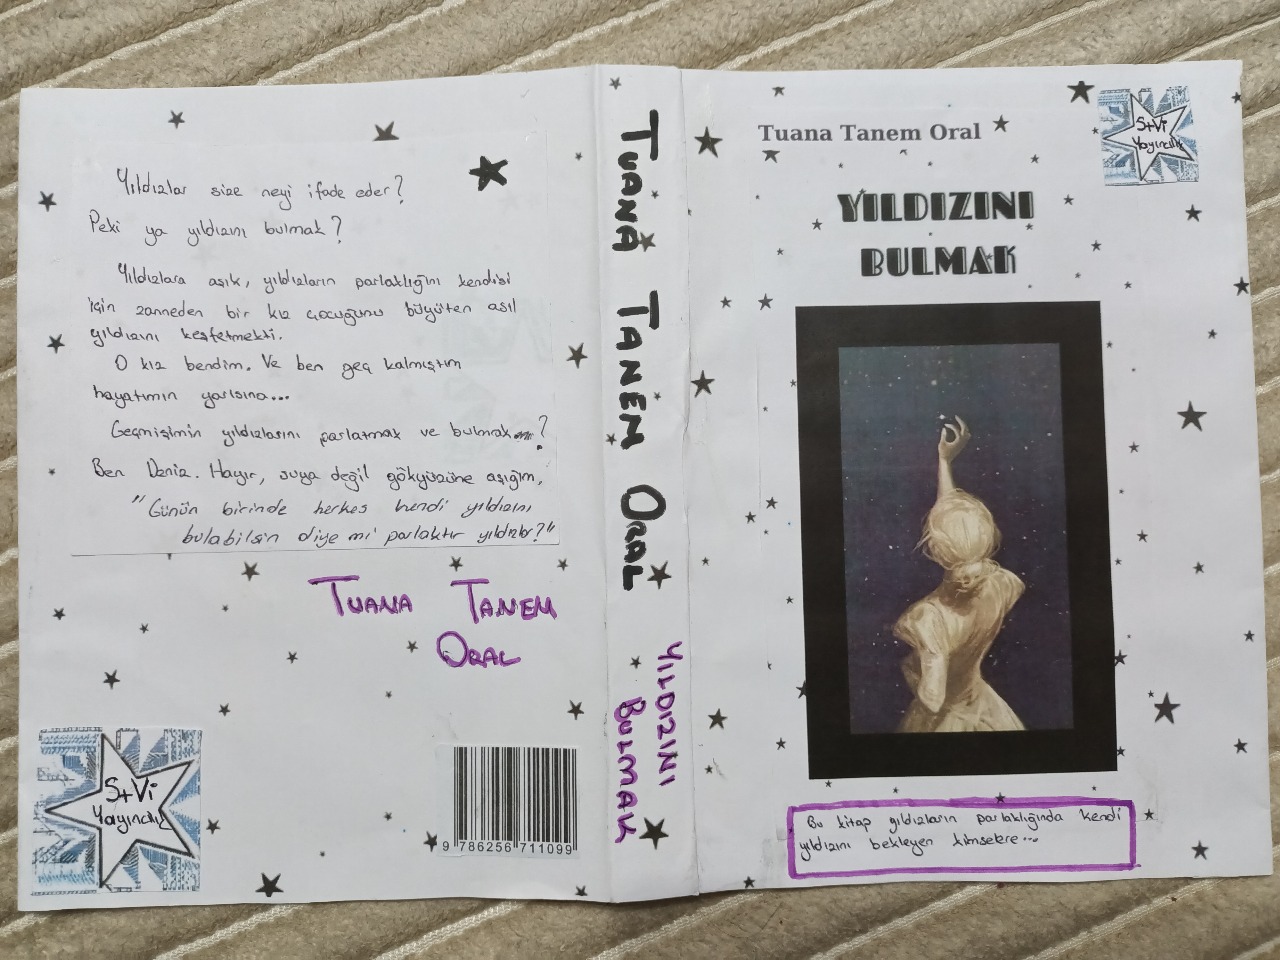 Yıldızlar size neyi ifade eder?
Peki ya yıldızını bulmak?
Yıldızlara aşık, yıldızların parlaklığını kendisi
için zanneden bir kız çocuğunu büyüten asıl
yıldızını keşfetmekti.
O kız bendim. Ve ben geç kalmıştım
hayatımın yarısına...
Geçmişimin yıldızlarını parlatmak ve bulmak ?
Ben Deniz. Hayır, suya değil gökyüzüne aşığım,
"Günün birinde herkes kendi yıldızını
bulabilsin diye mi parlaktır yıldızlar?"
TUANA TANEM
ORAL
S+Vi
Yayıncılık
9 786256 711099
TUANA TANEM ORAL
YILDIZINI
BULMAK
Tuana Tanem Oral
S+Vi
Yayıncılık
YILDIZINI
BULMAK
Bu kitap yıldızların parlaklığında kendi
yıldızını bekleyen kimselere...